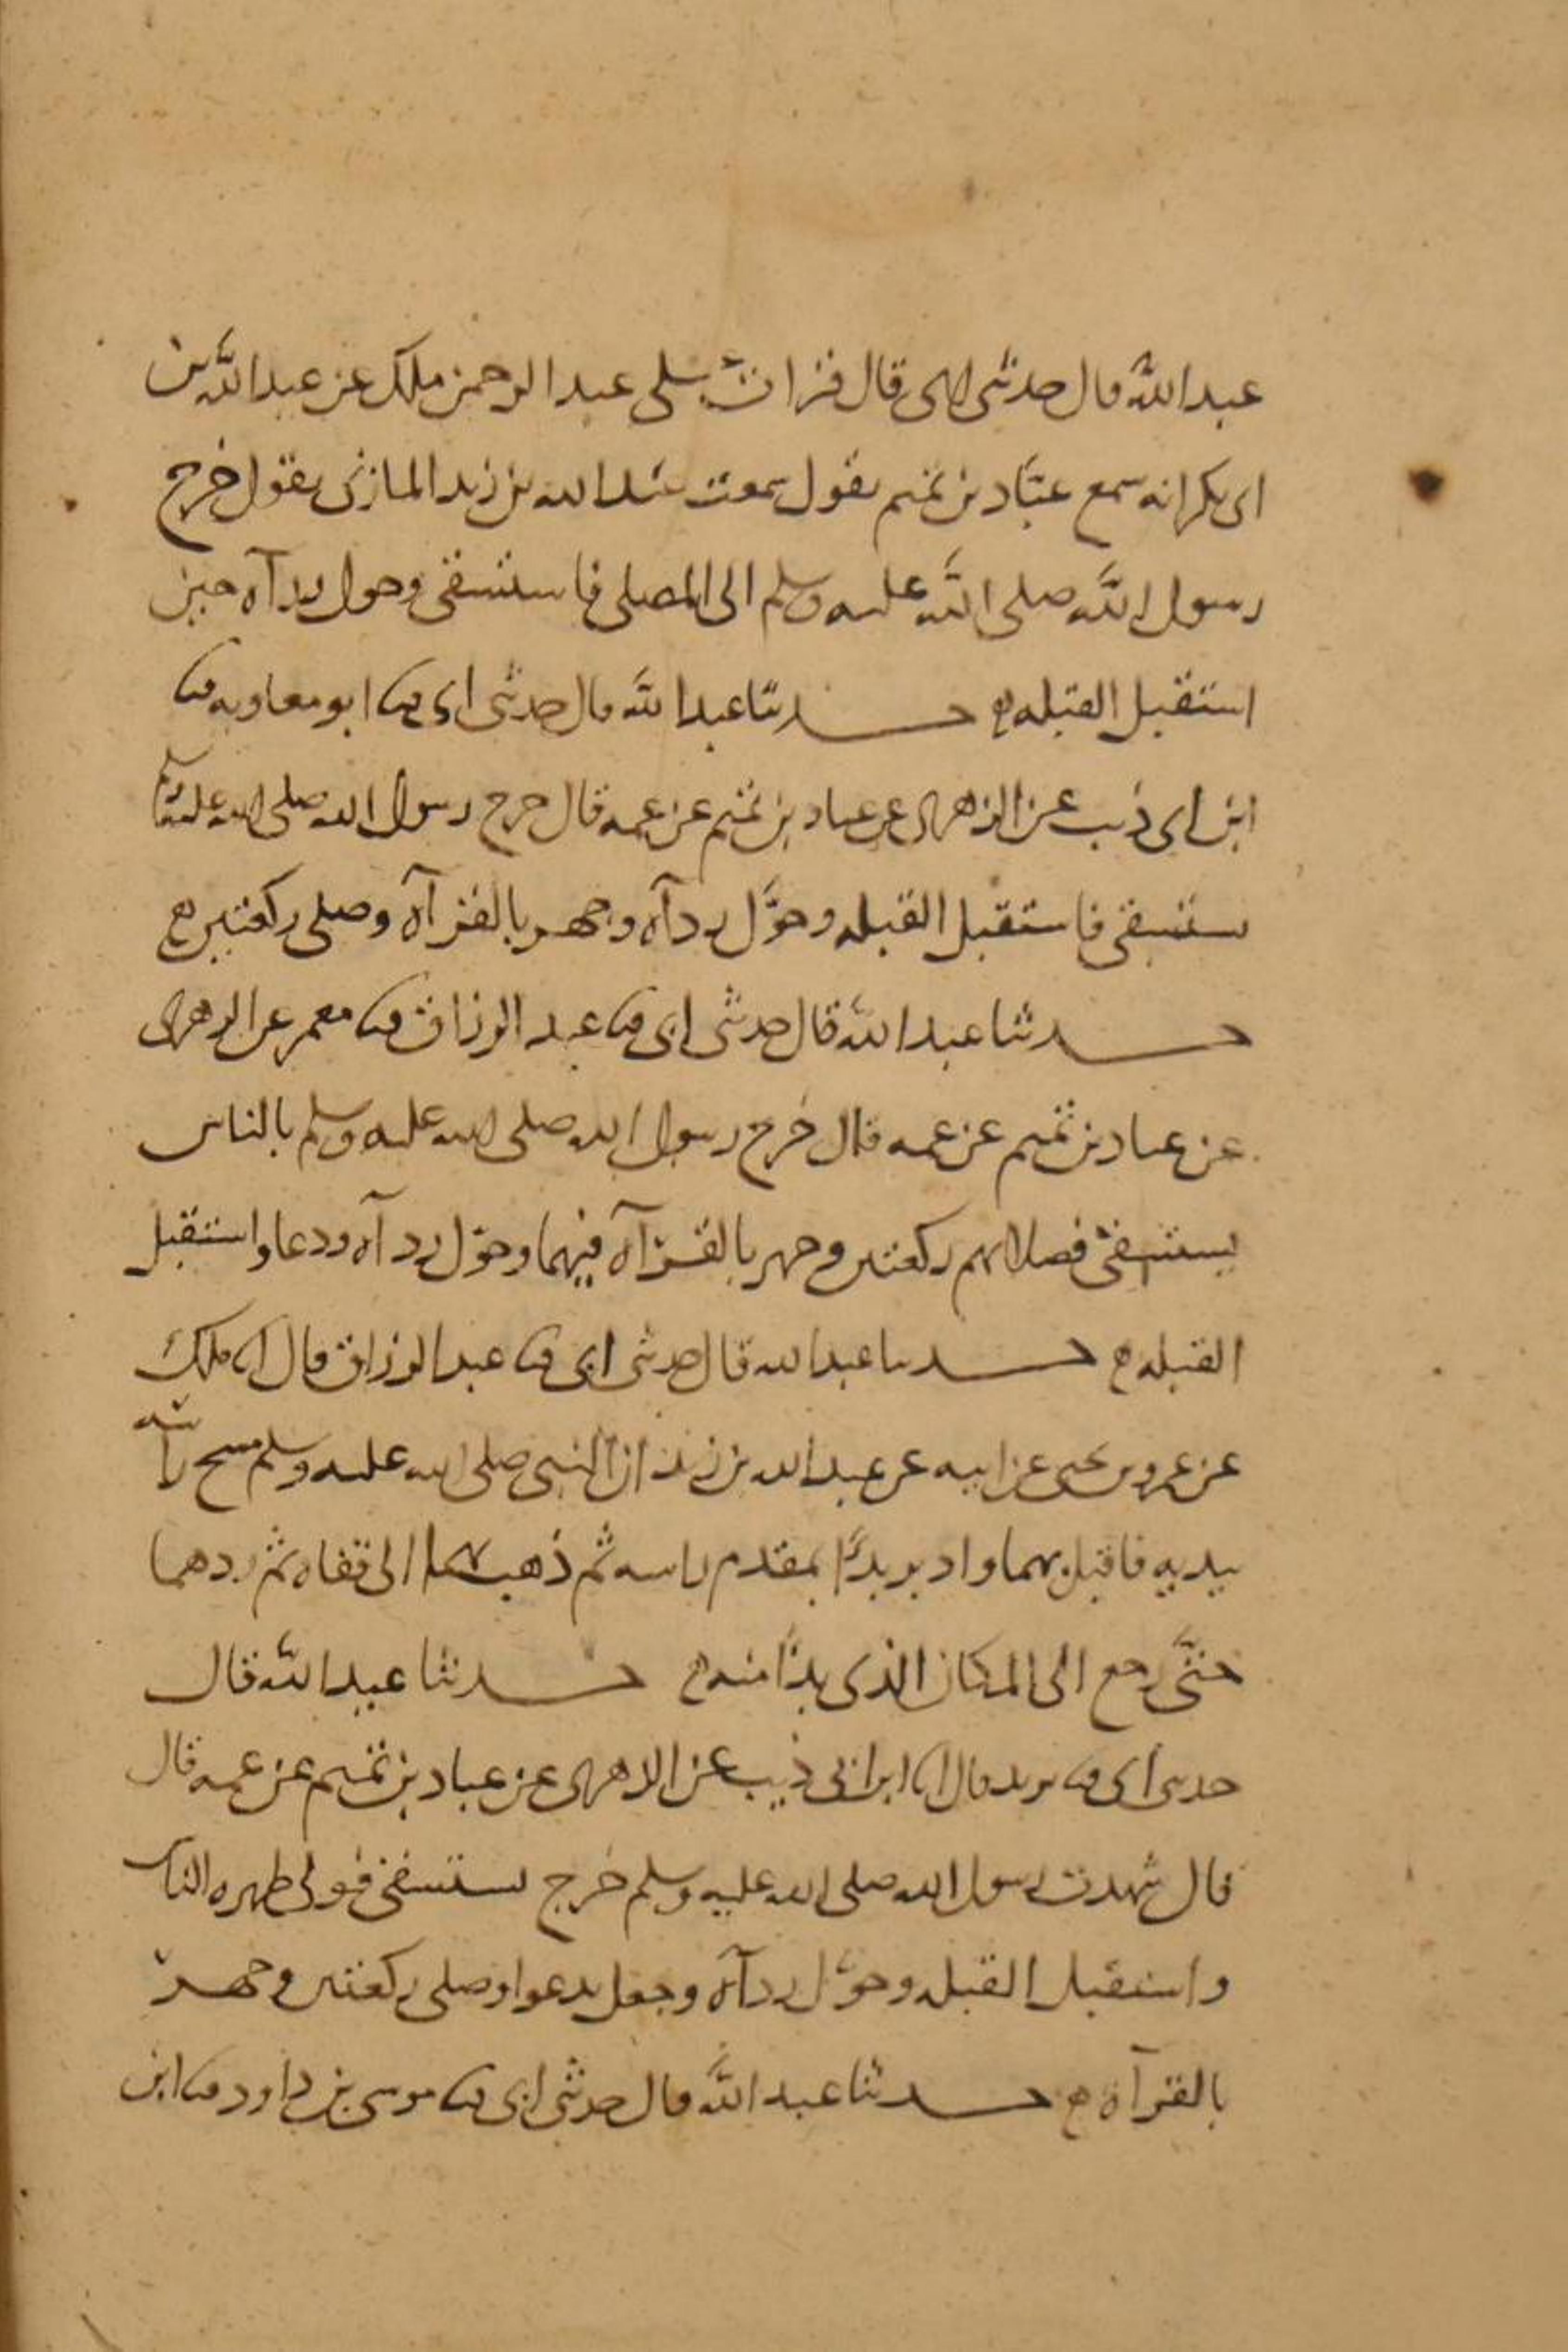 عبد الله قال حدثني ابي قال قرات على عبد الرحمن ملك عن عبد الله بن
ابي بكر انه سمع عبّاد بن تميم يقول سمعت عبد الله بن زيد المازني يقول خرج
رسول الله صلى الله عليه وسلم الى المصلى فاستسقى وحول ردآه حين
استقبل القبله حدثنا عبد الله قال حدثني ابي ثنا ابو معاويه ثنا
ابن ابي ذيب عن الزهري عن عباد بن تميم عن عمه قال خرج رسول الله صلى الله عليه وسلم
يستسقي فاستقبل القبله وحوَّل ردآه وجهر بالقرآه وصلى ركعتين
حدثنا عبد الله قال حدثني ابي ثنا عبد الرزاق ثنا معمر عن الزهري
عن عباد بن تميم عن عمه قال خرج رسول الله صلى الله عليه وسلم بالناس
يستسقي فصلا بهم ركعتين وجهر بالقرآه فيهما وحوّل ردآه ودعا واستقبل
القبله حدثنا عبد الله قال حدثني ابي ثنا عبد الرزاق قال انا ملك
عن عمرو بن يحيى عن ابيه عن عبد الله بن زيد ان النبي صلى الله عليه وسلم مسح راسه
بيديه فاقبل بهما وادبر بدا بمقدم راسه ثم ذهب بهما الى قفاه ثم ردهما
حتَّى رجع الى المكان الذي بدا منه حدثنا عبد الله قال
حدثني ابي ثنا يزيد قال انا ابن ابي ذيب عن الزهري عن عباد بن تميم عن عمه قال
قال شهدت رسول الله صلى الله عليه وسلم خرج يستسقي فولى ظهره الناس
واستقبل القبله وحوّل ردآه وجعل يدعوا وصلى ركعتين وجهر
بالقرآة حدثنا عبد الله قال حدثني ابي ثنا موسى بن داود ثنا ابن